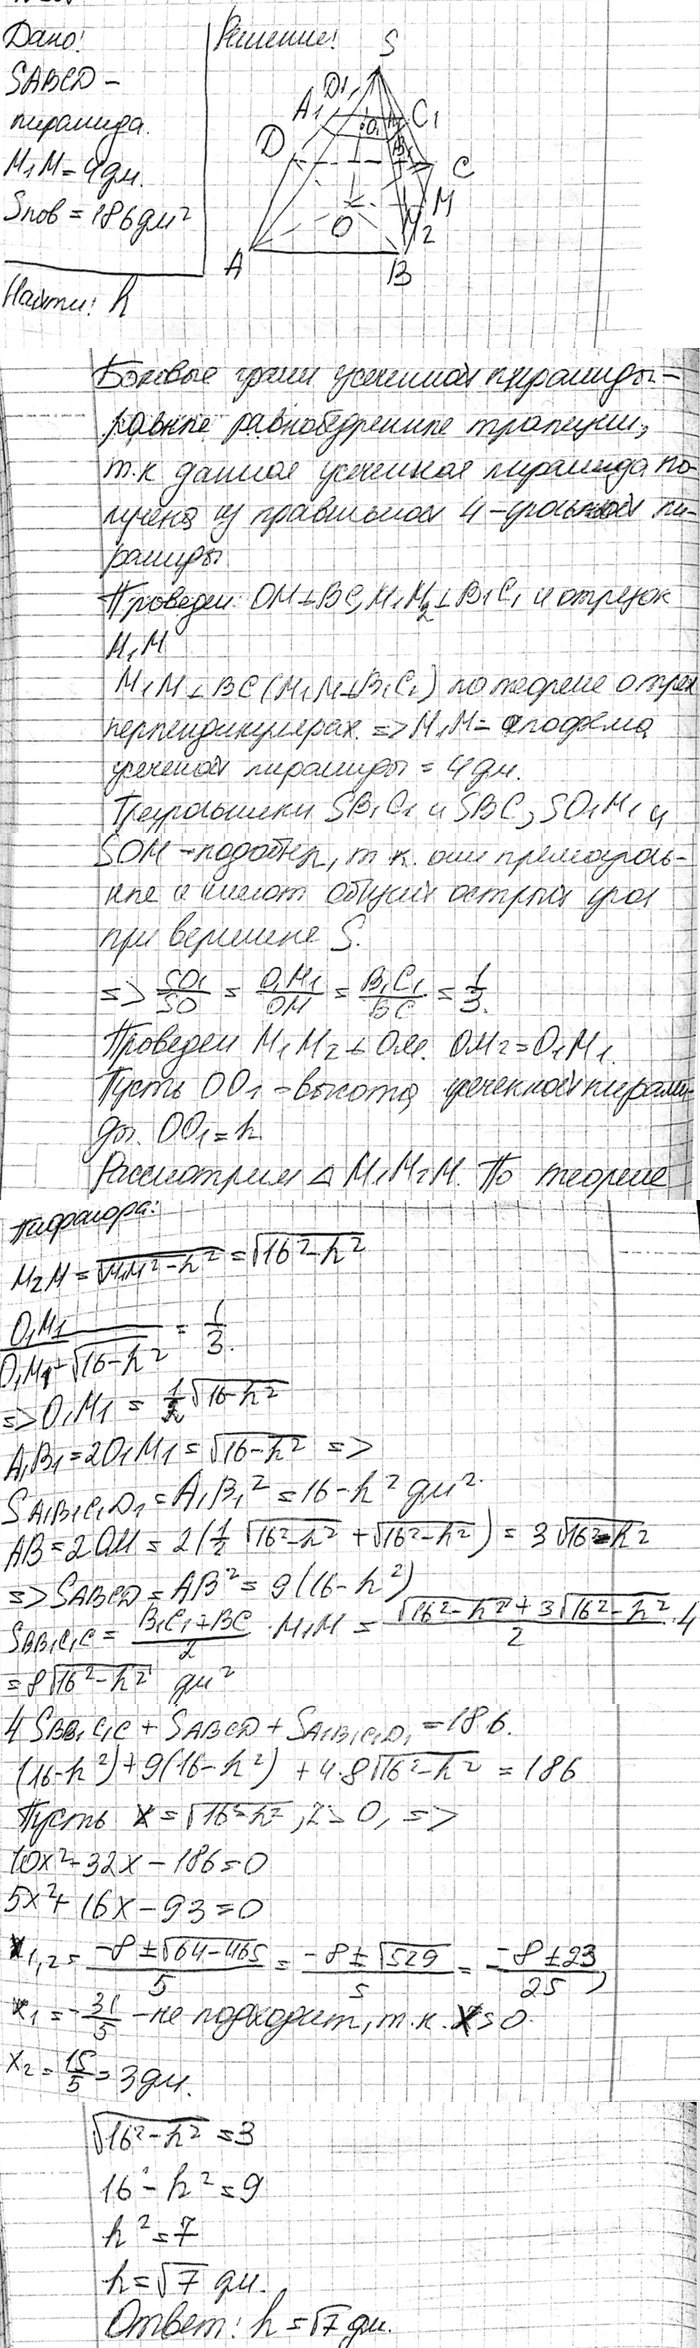 Дано:
SABCD –
пирамида.
M₁M = 4 дм.
Sпов = 186 дм²
Найти: h
Решение:
S
D₁
A₁
C₁
O₁
M₁
B₁
D
C
O
M
M₂
A
B
Боковые грани усеченной пирамиды –
равные равнобедренные трапеции,
т.к данная усеченная пирамида по-
лучена из правильной 4-угольной пи-
рамиды.
Проведем: OM⊥BC, M₁M₂⊥B₁C₁ и отрезок
M₁M
M₁M⊥BC (M₁M⊥B₁C₁) по теореме о трех
перпендикулярах. => M₁M – апофема
усеченой пирамиды = 4 дм.
Треугольники SB₁C₁ и SBC, SO₁M₁ и
SOM – подобны, т.к. они прямоуголь-
ные и имеют общий острый угол
при вершине S.
=> SO₁/SO = O₁M₁/OM = B₁C₁/BC = 1/3.
Проведем M₁M₂⊥OM. OM₂ = O₁M₁.
Пусть OO₁ – высота усеченной пирами-
ды. OO₁ = h
Рассмотрим △ M₁M₂M. По теореме
Пифагора:
M₂M = √(M₁M² – h²) = √(16² – h²)
O₁M₁/(O₁M₁ + √(16 – h²)) = 1/3.
=> O₁M₁ = 1/2 √(16 – h²)
A₁B₁ = 2O₁M₁ = √(16 – h²) =>
SA₁B₁C₁D₁ = A₁B₁² = 16 – h² дм².
AB = 2OM = 2(1/2 √(16² – h²) + √(16² – h²)) = 3√(16² – h²)
=> SABCD = AB² = 9(16 – h²)
SBB₁C₁C = (B₁C₁ + BC)/2 · M₁M = (√(16² – h²) + 3√(16² – h²))/2 · 4
= 8√(16² – h²) дм²
4 SBB₁C₁C + SABCD + SA₁B₁C₁D₁ = 186.
(16 – h²) + 9(16 – h²) + 4·8√(16² – h²) = 186
Пусть x = √(16² – h²), x > 0, =>
10x² + 32x – 186 = 0
5x² + 16x – 93 = 0
x₁,₂ = (–8 ± √(64 – 465))/5 = (–8 ± √529)/5 = (–8 ± 23)/25;
x₁ = –31/5 – не подходит, т.к. x > 0.
x₂ = 15/5 = 3 дм.
√(16² – h²) = 3
16 – h² = 9
h² = 7
h = √7 дм.
Ответ: h = √7 дм.